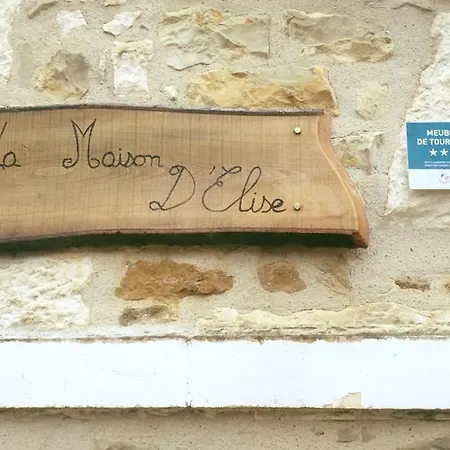 La Maison
D'Elise
MEUBL
DE TOUR
★★